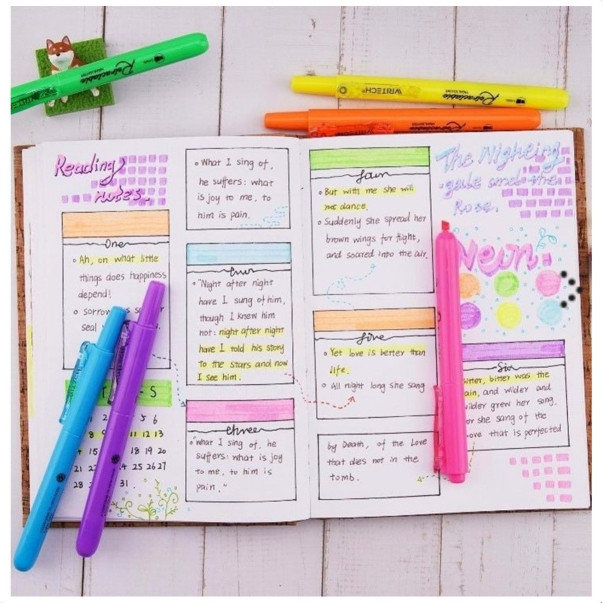 Retractable
WRITECH
Retractable
Retractable
Reading
notes.
One
Ah, on what little
things does happiness
depend!
sorrow
seal
6
8 9 11 12 13
15 18 19 20
21 22 24 25 26 27
28 31.
What I sing of,
he suffers: what
is joy to me, to
him is pain.
"Night after night
have I sung of him,
though I knew him
not: night after night
have I told his story
To the stars and now
I see him.
three
"What I sing of, he
suffers: what is joy
to me, to him is
pain."
But with me she will
not dance,
Suddenly she spread her
brown wings for flight,
and soared into the air,
five
Yet love is better than
life.
All night long she sang
by Death, of the Love
that dies not in the
tomb.
The Nigheing
gale and the
Rose.
Neon:
Six
bitter, bitter was the
pain, and wilder and
wilder grew her song.
she sang of the
that is perfected